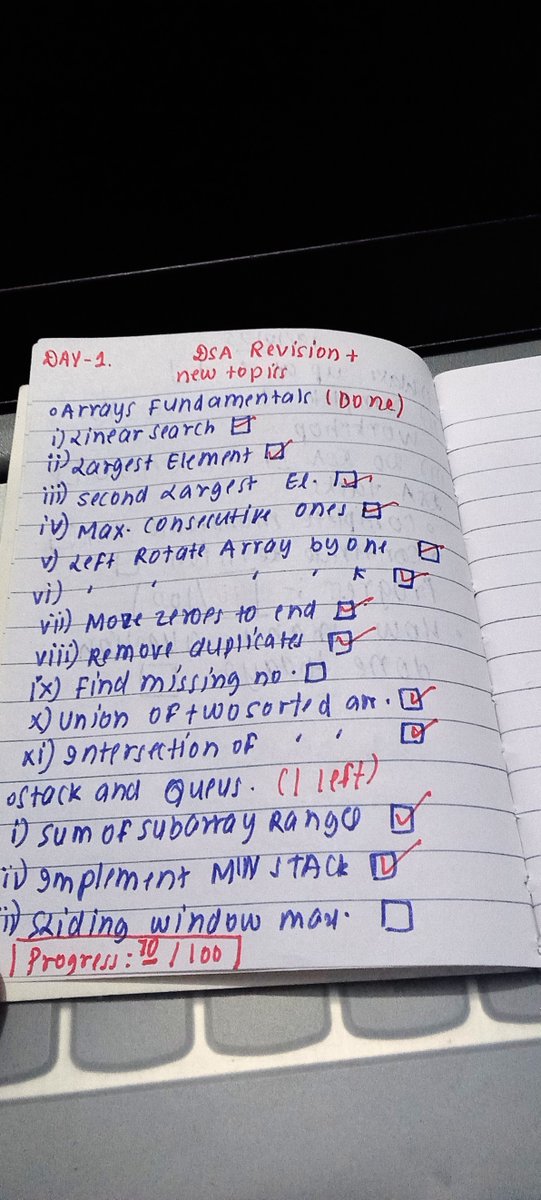 DAY-1. DSA Revision +
new topics
Arrays Fundamentals (Done)
i) Linear search
ii) Largest Element
iii) second Largest El.
iv) Max. consecutive ones
v) Left Rotate Array by one
vi) ' ' ' ' K
vii) Move zeroes to end
viii) Remove duplicates
ix) Find missing no.
x) Union of two sorted arr.
xi) Intersection of ' '
Stack and Queus. (1 left)
i) Sum of subarray Ranges
ii) Implement MIN STACK
ii) Sliding window max.
Progress: 70 / 100